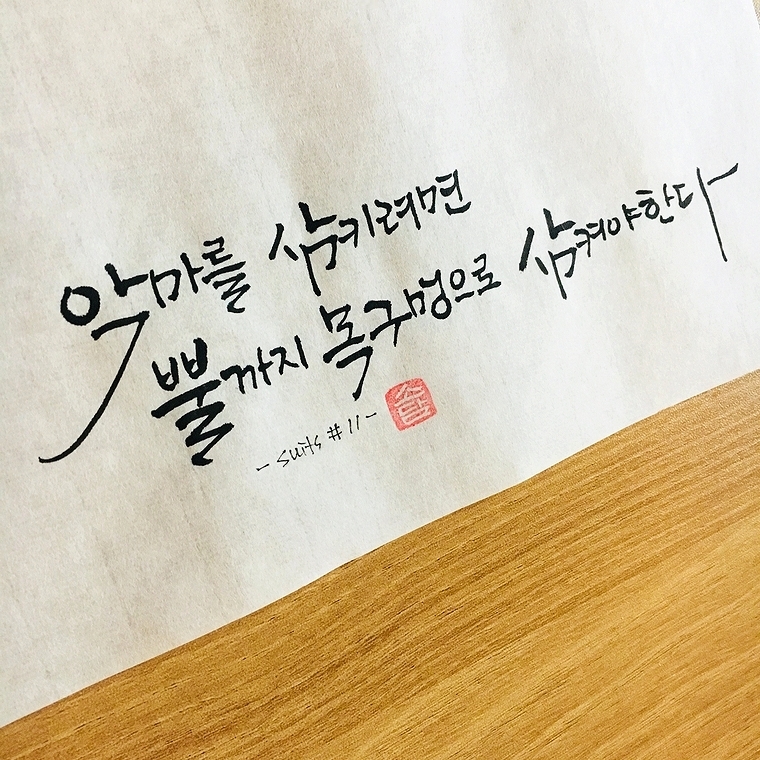 악마를 삼키려면
뿔까지 목구멍으로 삼켜야한다
- suits #11 -